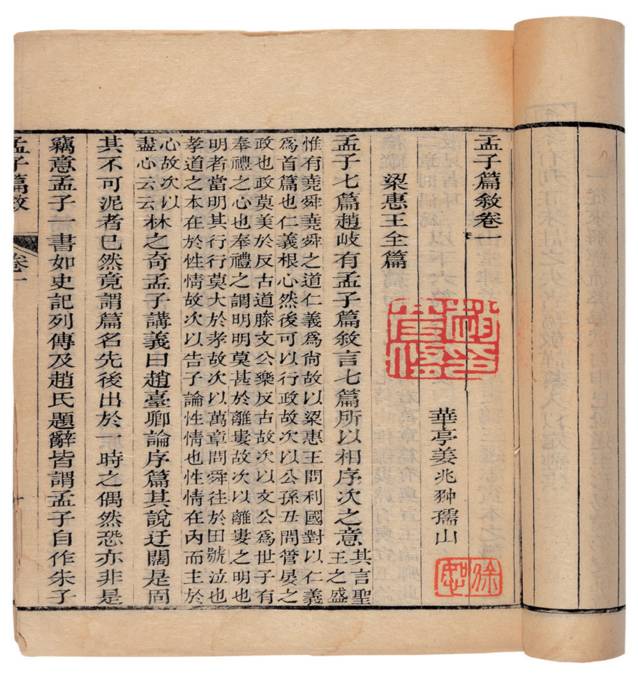 孟子篇敘卷一
梁惠王全篇
華亭姜兆翀孺山
徐恕
孟子七篇趙岐有孟子篇敘言七篇所以相序次之意其言聖
王之盛
惟有堯舜堯舜之道仁義爲尙故以梁惠王問利國對以仁義
爲首篇也仁義根心然後可以行政故次以公孫丑問管晏之
政也政莫美於反古道滕文公樂反古故次以文公爲世子有
奉禮之心也奉禮之謂明明莫甚於離婁故次以離婁之明也
明者當明其行行莫大於孝故次以萬章問舜往於田號泣也
孝道之本在於性情故次以告子論性情也情性在內而主於
心故次以
盡心云云林之奇孟子講義曰趙臺卿論序篇其說迂闊是固
其不可泥者已然竟謂篇名先後出於一時之偶然恐亦非是
竊意孟子一書如史記列傳及趙氏題辭皆謂孟子自作朱子
孟子篇敘 卷一